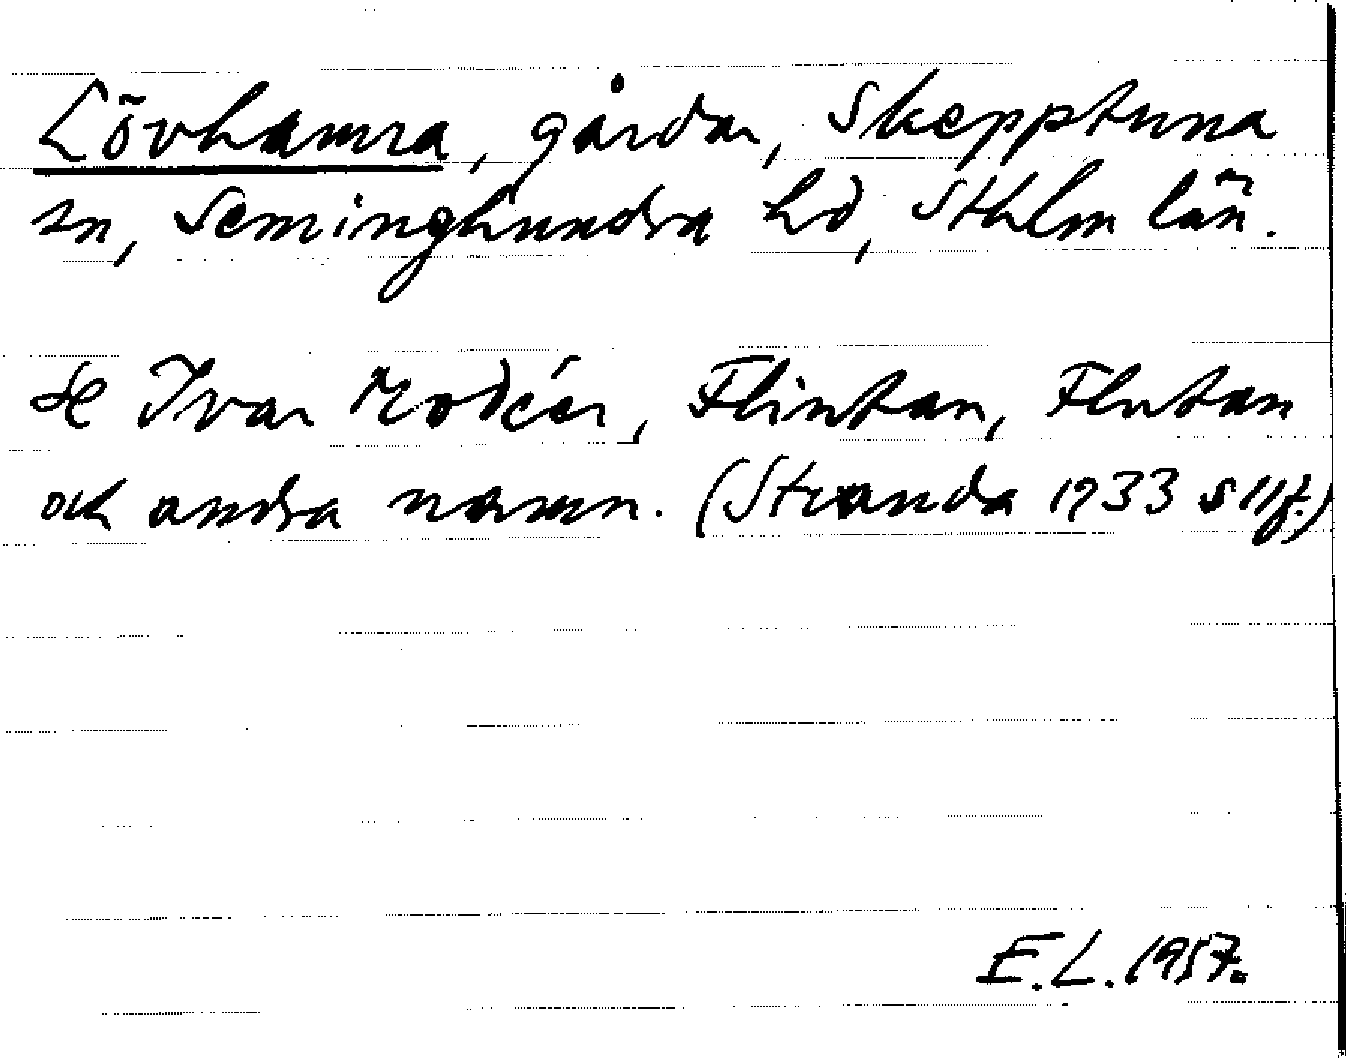 Lövhamra, gårdar, Skepptuna
sn, Seminghundra hd, Sthlm län.
Se Ivar Modéer, Flintan, Flutan
och andra namn. (Stranda 1933 s 11f.)
E.L. 1957.